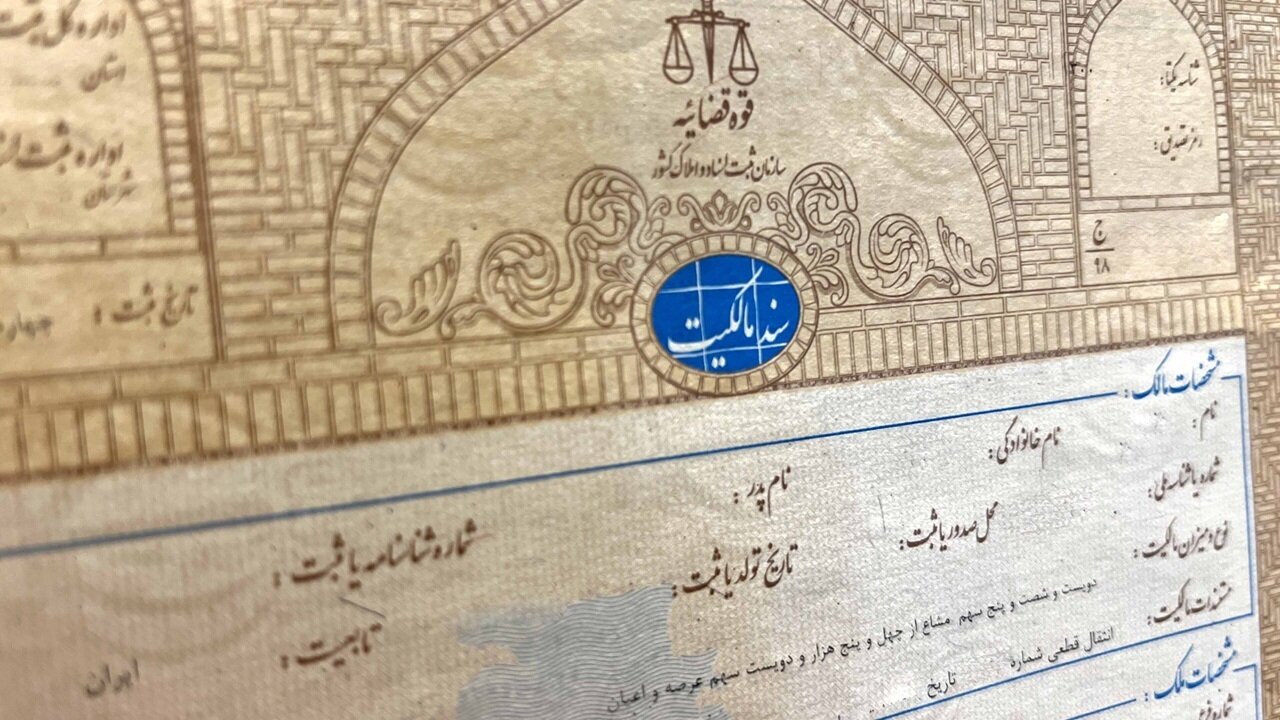 قوه قضائیه
سازمان ثبت اسناد و املاک کشور
سند مالکیت
شناسه یکتا:
رمز تصدیق:
ج
۹۸
اداره کل
استان
اداره ثبت
شهرستان
تاریخ ثبت :
مشخصات مالک :
نام : نام خانوادگی : نام پدر : شماره شناسنامه یا ثبت :
شماره یا شناسه ملی : محل صدور یا ثبت : تاریخ تولد یا ثبت : تابعیت : ایران
نوع و میزان مالکیت : دویست و شصت و پنج سهم مشاع از چهل و پنج هزار و دویست سهم عرصه و اعیان
مستندات مالکیت : انتقال قطعی شماره تاریخ
مشخصات ملک :